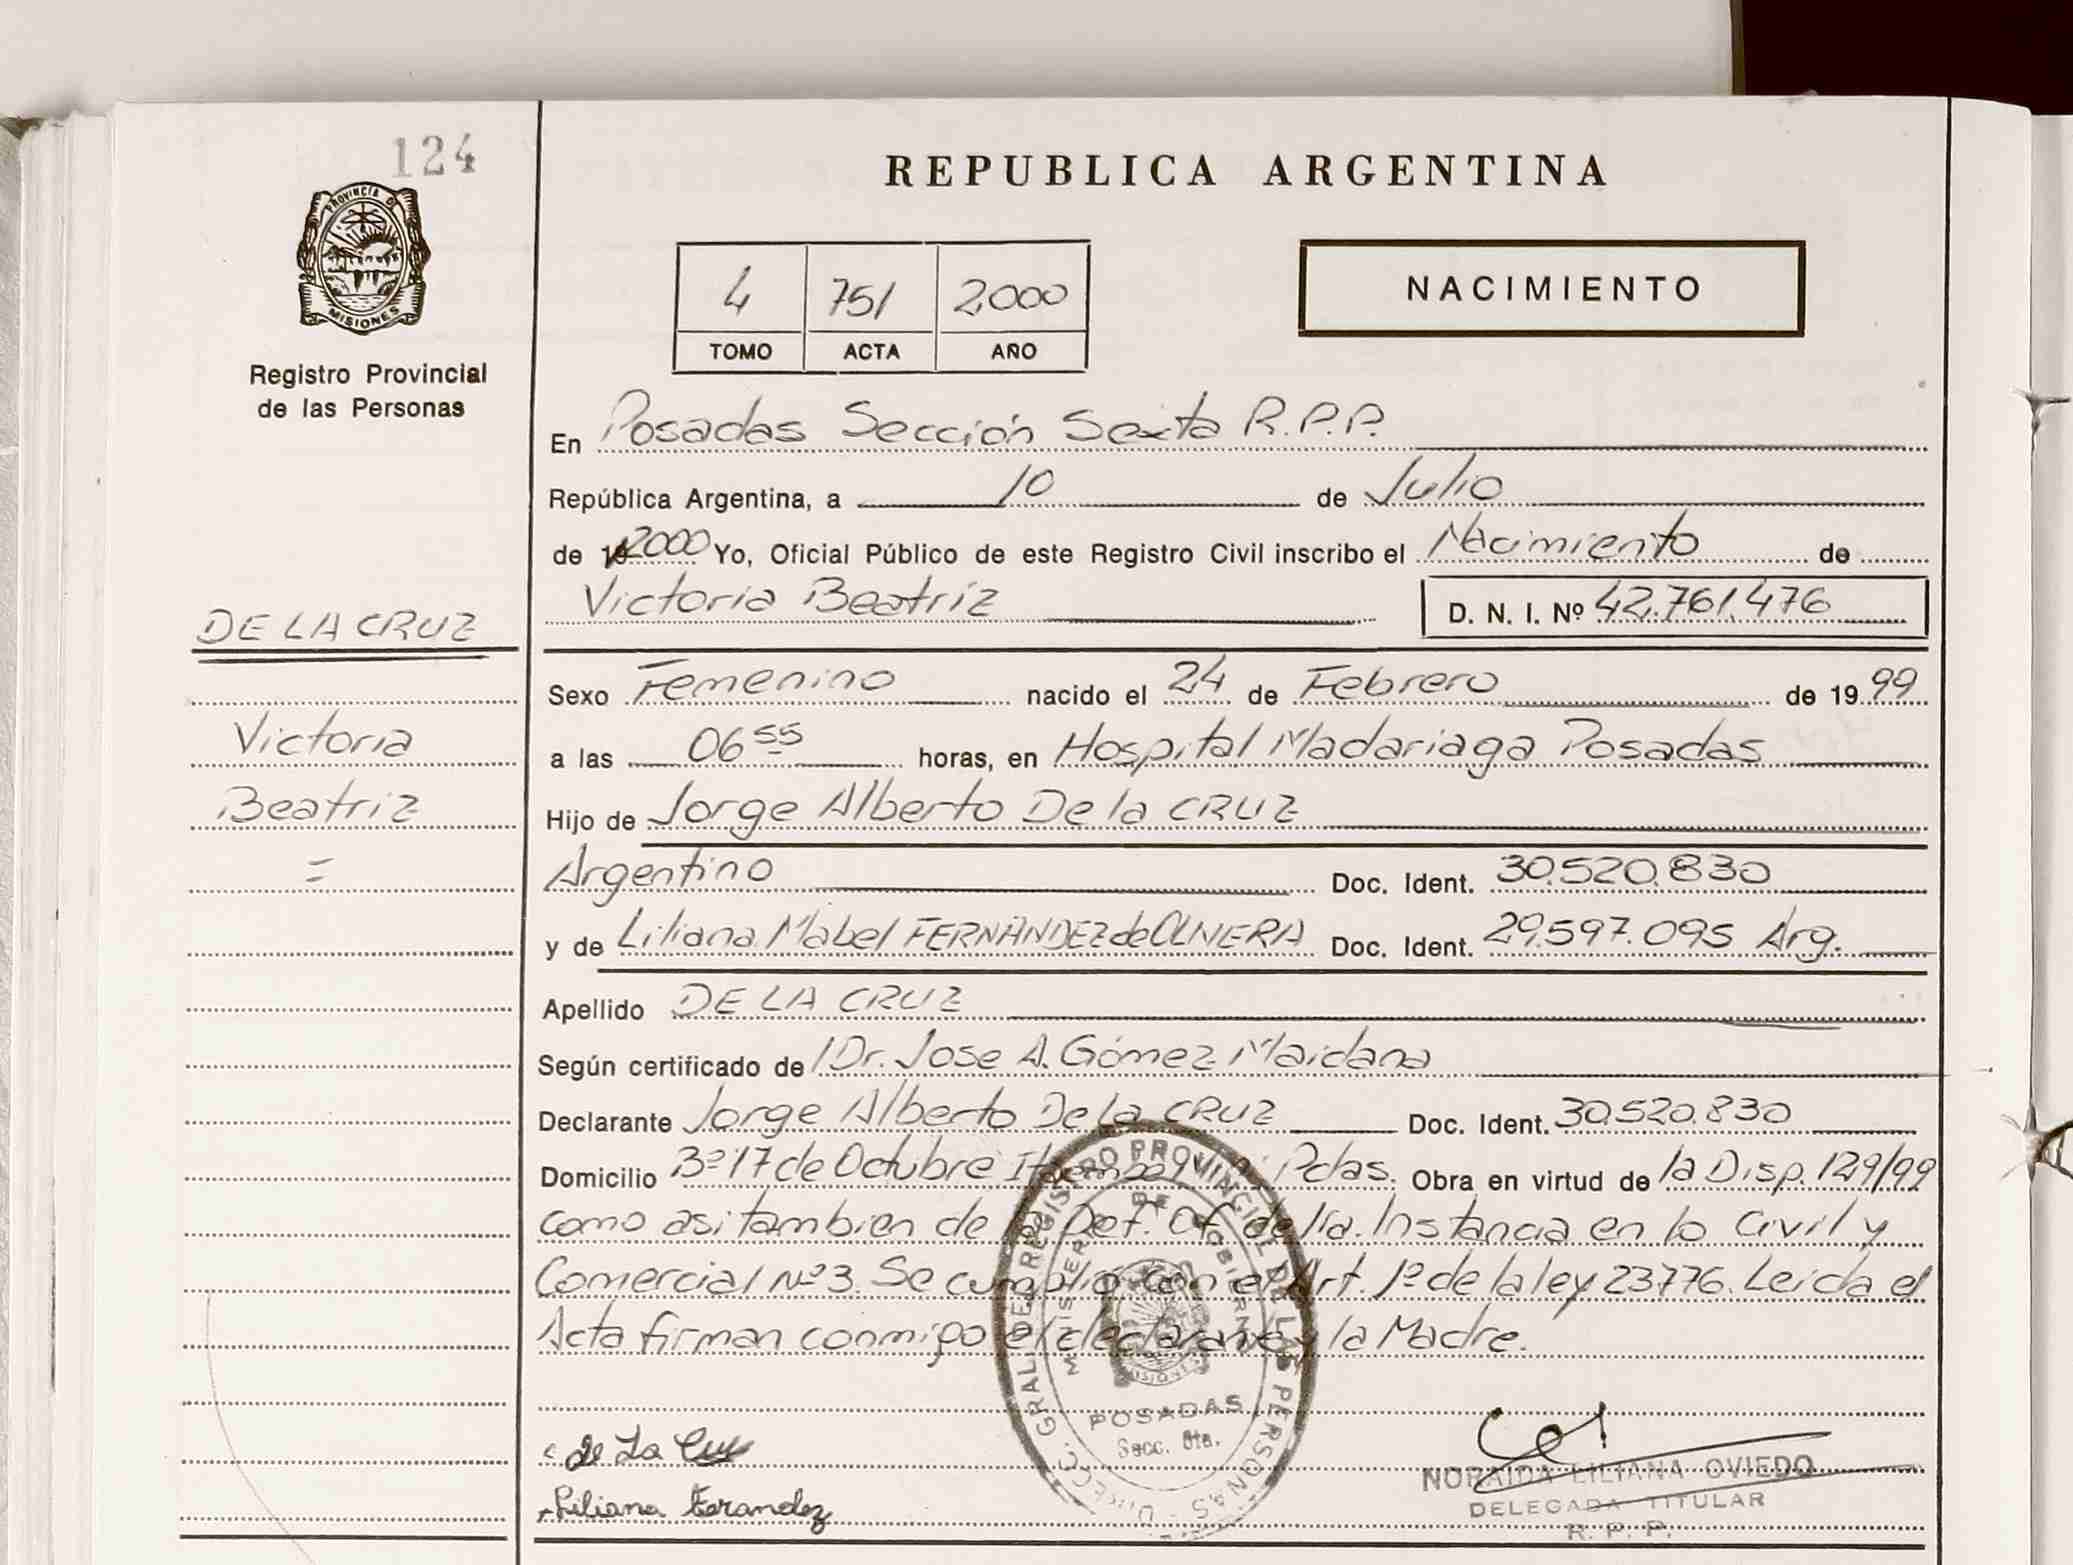 124
PROVINCIA D
MISIONES
Registro Provincial
de las Personas
REPUBLICA ARGENTINA
4 751 2000
TOMO ACTA AÑO
NACIMIENTO
En Posadas Sección Sexta R.P.P.
República Argentina, a 10 de Julio
de 2000 Yo, Oficial Público de este Registro Civil inscribo el Nacimiento de
Victoria Beatriz D. N. I. Nº 42.761.476
DE LA CRUZ
Victoria
Beatriz
=
Sexo Femenino nacido el 24 de Febrero de 1999
a las 06 55 horas, en Hospital Madariaga Posadas
Hijo de Jorge Alberto De la CRUZ
Argentino Doc. Ident. 30.520.830
y de Liliana Mabel FERNÁNDEZ de OLIVERA Doc. Ident. 29.597.095 Arg.
Apellido DE LA CRUZ
Según certificado de Dr. Jose A. Gómez Maidana
Declarante Jorge Alberto De la CRUZ Doc. Ident. 30.520.830
Domicilio Bº 17 de Octubre Pdas. Obra en virtud de la Disp. 129/99
como asi tambien de la Def. Of. de 1ra. Instancia en lo Civil y
Comercial Nº 3. Se cumplió con el Art. 1º de la ley 23776. Leida el
Acta firman conmigo el declarante y la Madre.
DIRECC. GRAL. DEL REGISTRO PROVINCIAL DE LAS PERSONAS
MINISTERIO DE GOBIERNO
MISIONES
POSADAS
Secc. 6ta.
de La Cruz
Liliana Ferandez
NORAIDA LILIANA OVIEDO
DELEGADA TITULAR
R. P. P.